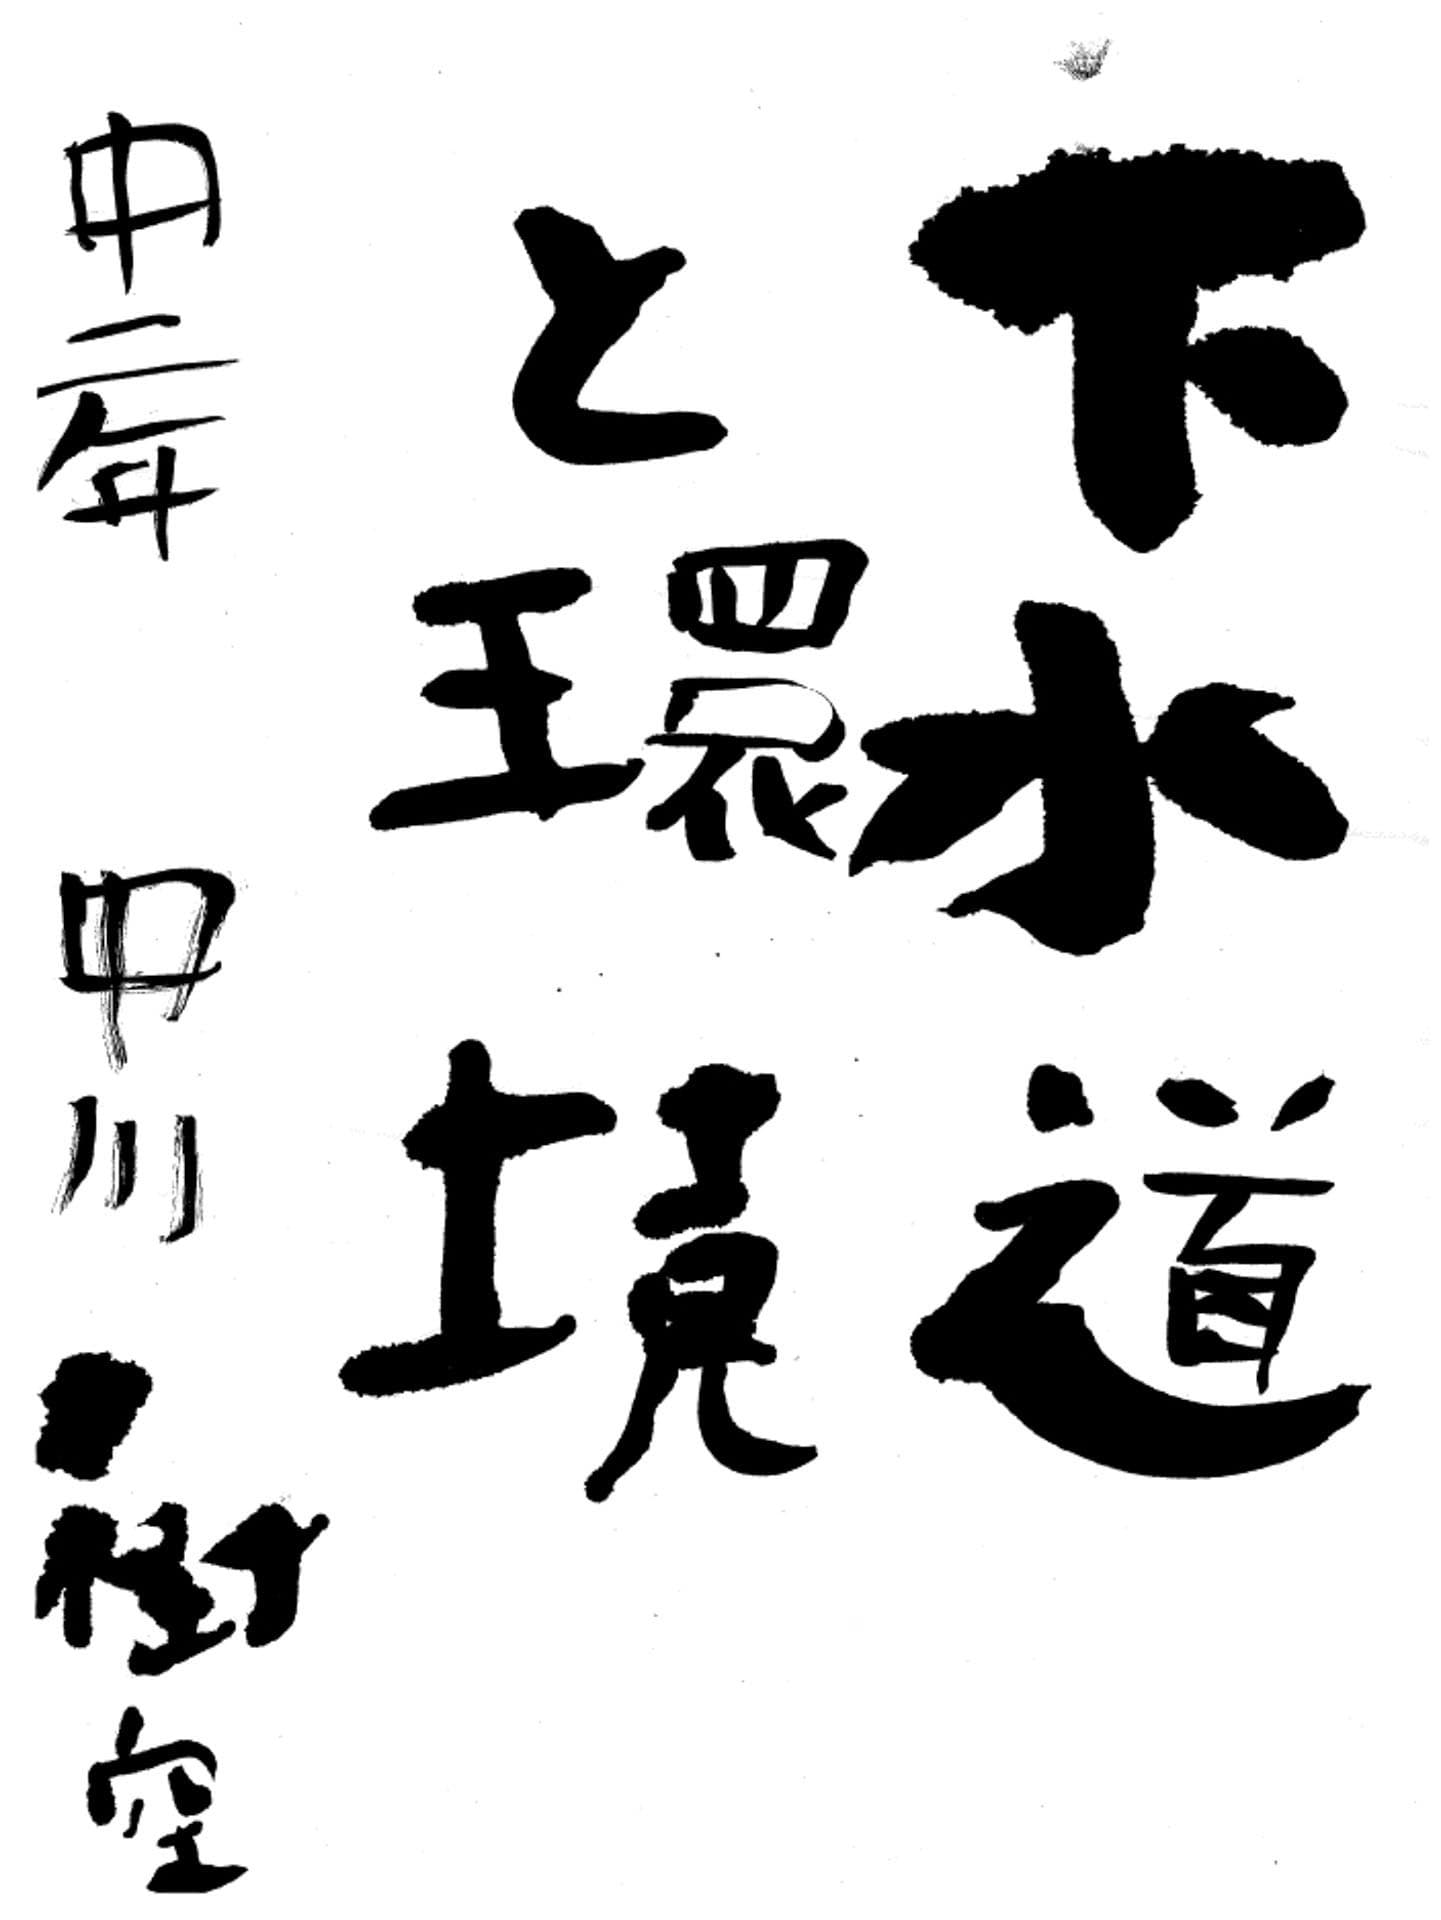 下水道
と環境
中二年 中川 樹空